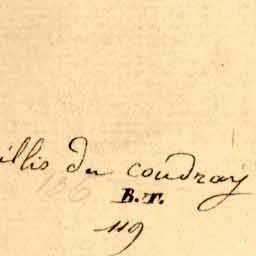 illis du coudray
136
B.T.
119